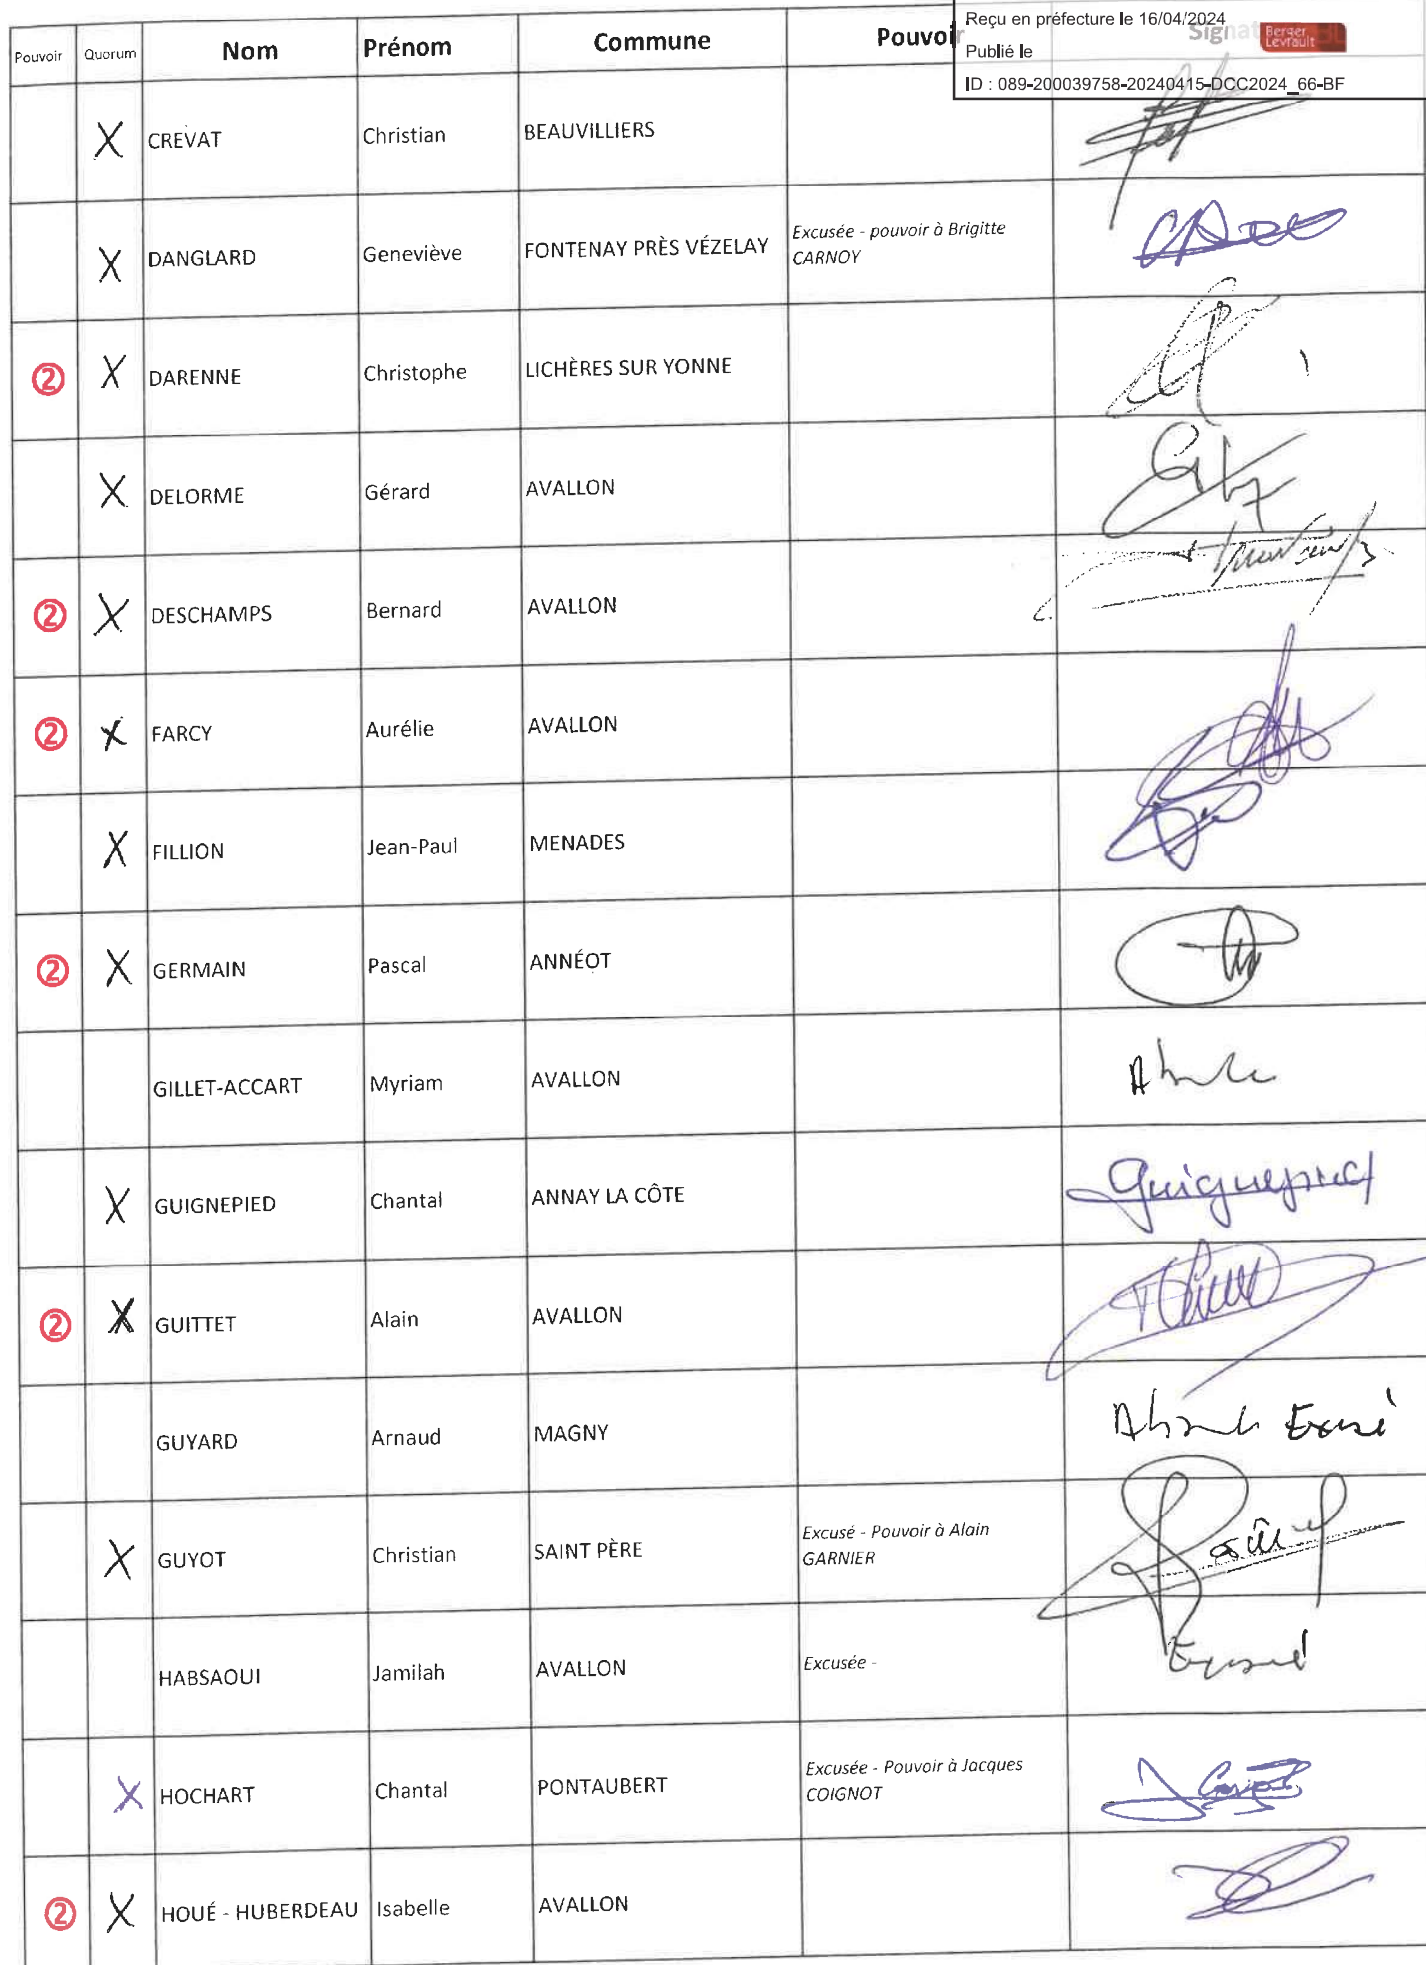 Reçu en préfecture le 16/04/2024
Publié le
ID : 089-200039758-20240415-DCC2024_66-BF
Berger Levrault
Pouvoir Quorum Nom Prénom Commune Pouvoir Signat
X CREVAT Christian BEAUVILLIERS
X DANGLARD Geneviève FONTENAY PRÈS VÉZELAY Excusée - pouvoir à Brigitte
CARNOY
② X DARENNE Christophe LICHÈRES SUR YONNE
X DELORME Gérard AVALLON
② X DESCHAMPS Bernard AVALLON
② X FARCY Aurélie AVALLON
X FILLION Jean-Paul MENADES
② X GERMAIN Pascal ANNÉOT
GILLET-ACCART Myriam AVALLON
X GUIGNEPIED Chantal ANNAY LA CÔTE Guignepied
② X GUITTET Alain AVALLON
GUYARD Arnaud MAGNY
X GUYOT Christian SAINT PÈRE Excusé - Pouvoir à Alain
GARNIER
HABSAOUI Jamilah AVALLON Excusée -
X HOCHART Chantal PONTAUBERT Excusée - Pouvoir à Jacques
COIGNOT
② X HOUÉ - HUBERDEAU Isabelle AVALLON